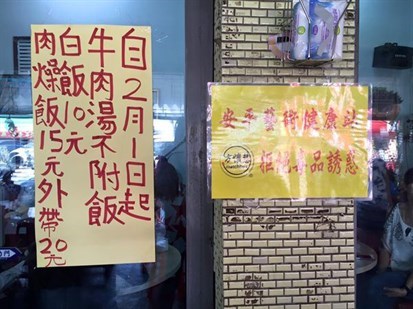 自2月1日起
牛肉湯不附飯
白飯10元
肉燥飯15元外帶20元
安平藝術健康
拒絕毒品誘惑